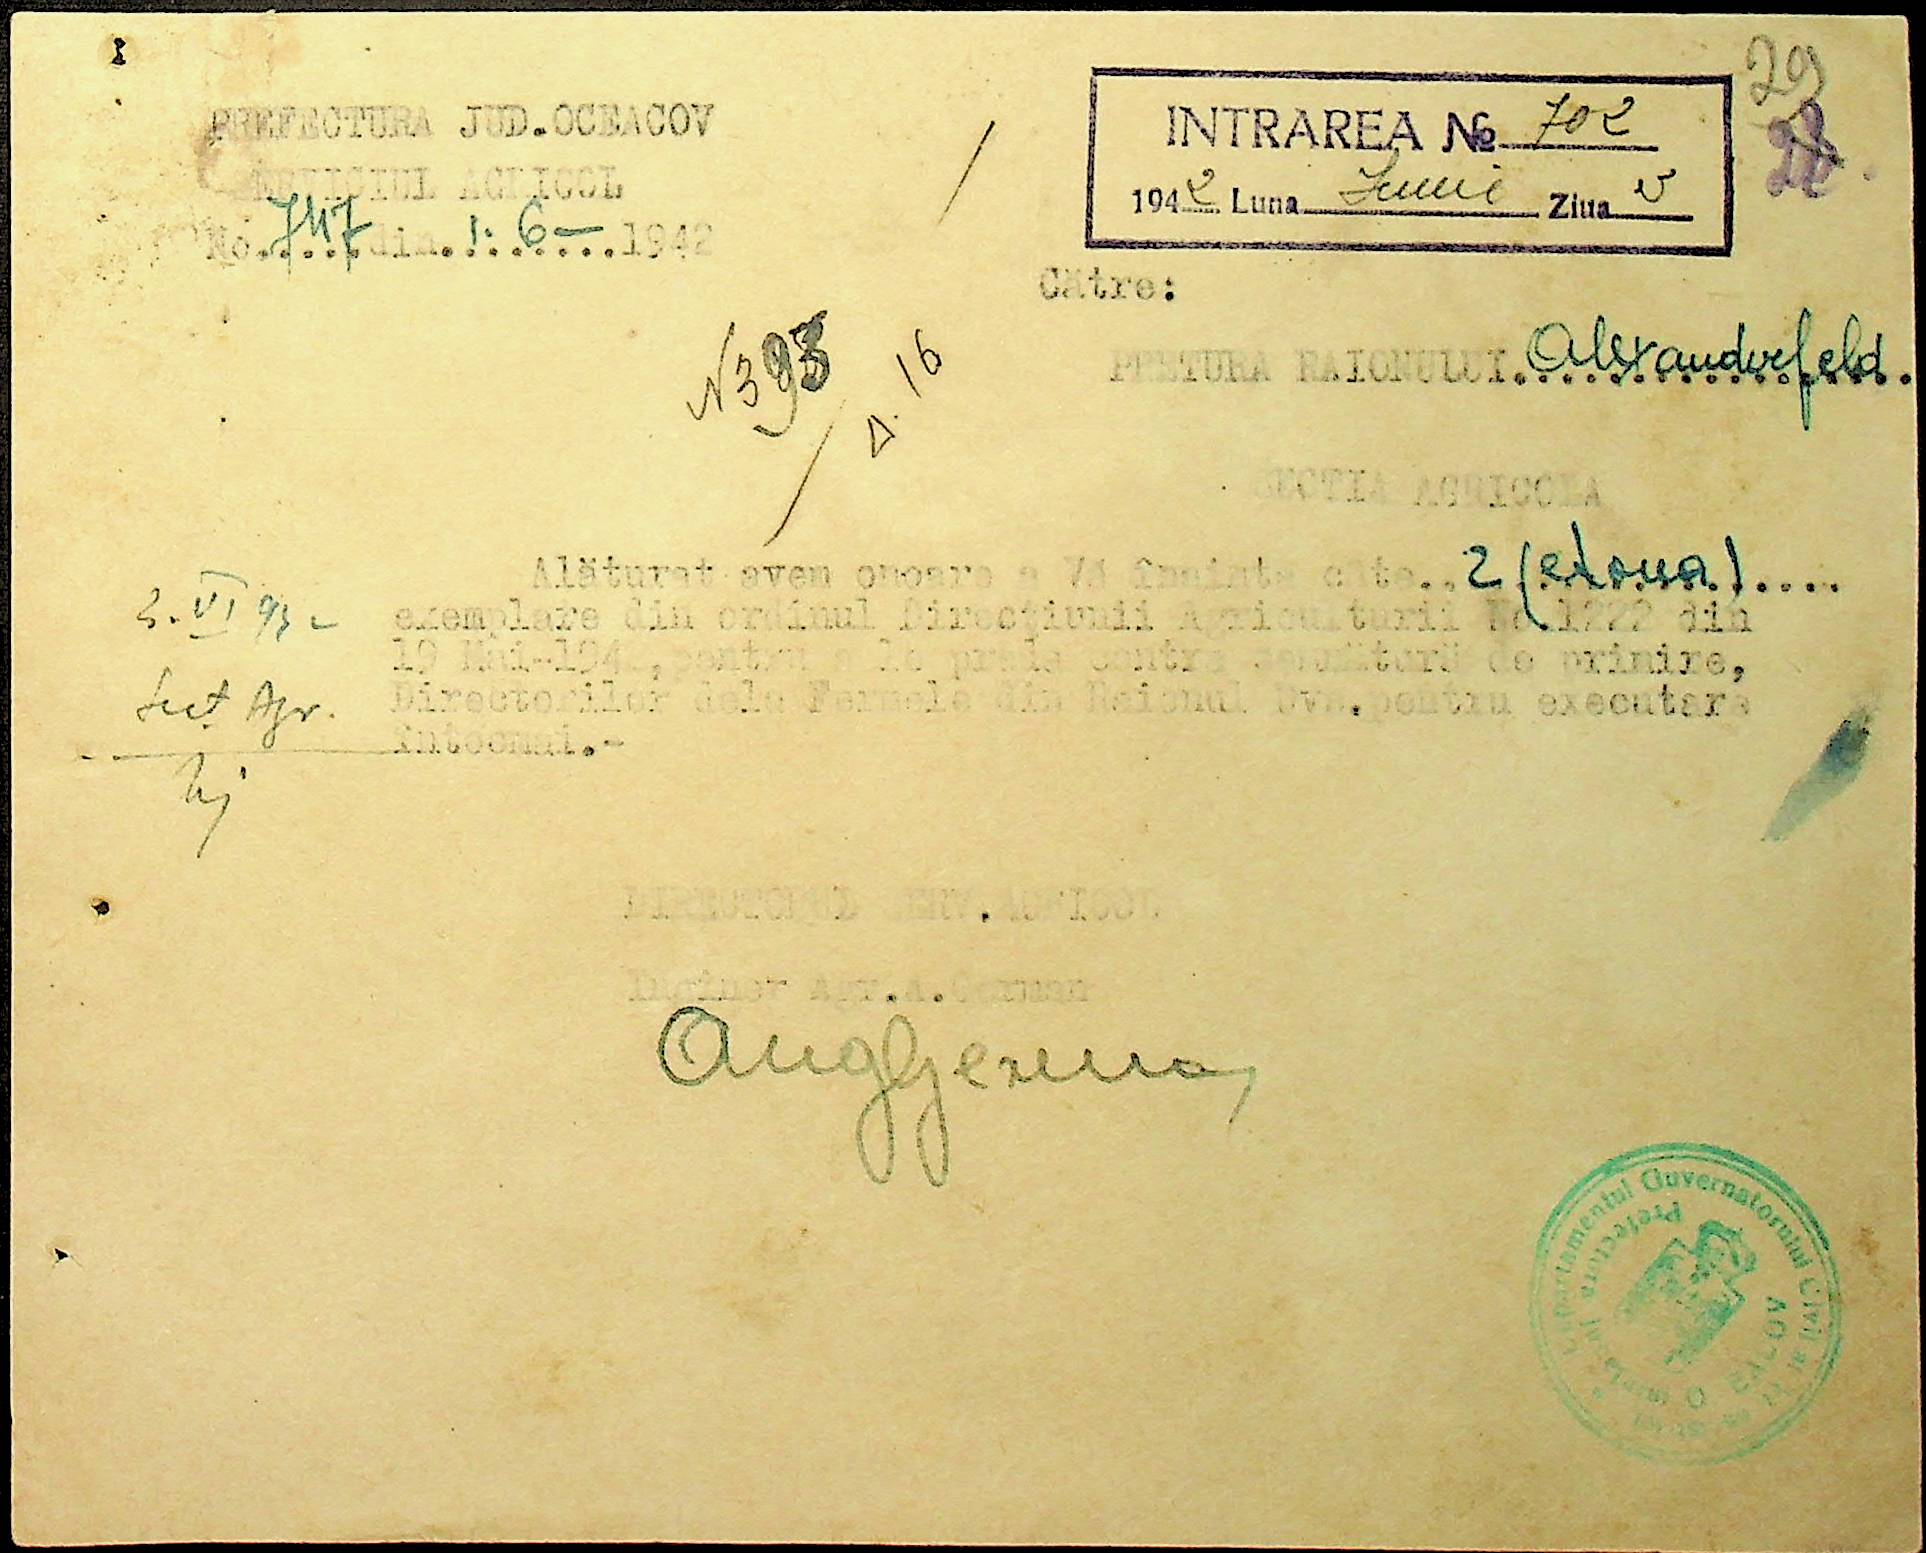 29
PREFECTURA JUD.OCEACOV
SERVICIUL AGRICOL
No.747 din 1.6-1942
INTRAREA № 702
1942 Luna Iunie Ziua
Către:
PRETURA RAIONULUI Alexandrfeld
N 393
D. 16
SECTIA AGRICOLA
Alăturat avem onoare a Vă înainta câte..2 (
exemplare din ordinul Direcţiunii Agriculturii No.1222 din
19 Mai-194 ,pentru a le preda contra semnătură de primire,
Directorilor dela Fermele din Raionul Dvs.pentru executare
întocmai.-
3. VI
Sect Agr.
DIRECTORUL SERV.AGRICOL
Inginer Agr.A.German
Departamentul Guvernatorului Civil al
Prefectura